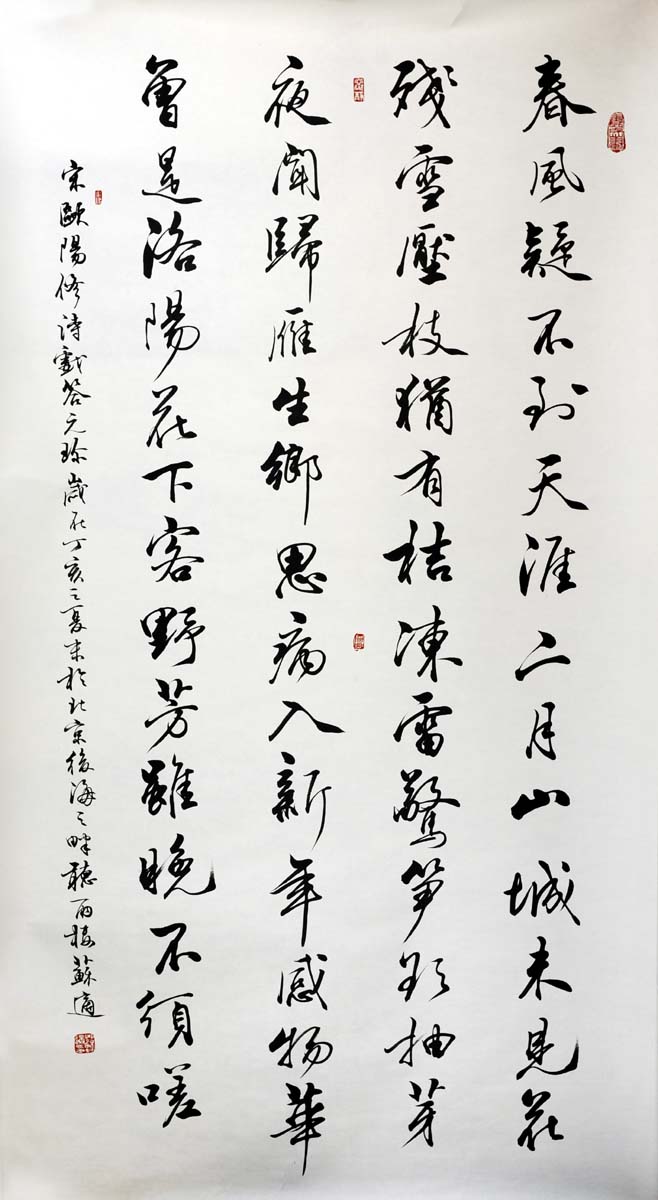 春風疑不到天涯二月山城未見花
殘雪壓枝猶有桔凍雷驚笋欲抽芽
夜聞歸雁生鄉思病入新年感物華
曾是洛陽花下客野芳雖晚不須嗟
宋歐陽修詩戲答元珍歲在丁亥之夏末於北京後海之畔聽雨樓蘇適